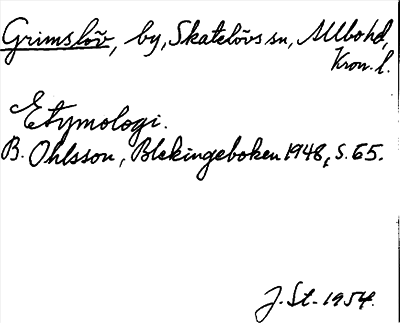 Grimslöv, by, Skatelövs sn, Allbo hd,
Kron. l.
Etymologi.
B. Ohlsson, Blekingeboken 1948, s. 65.
J. St. 1954.